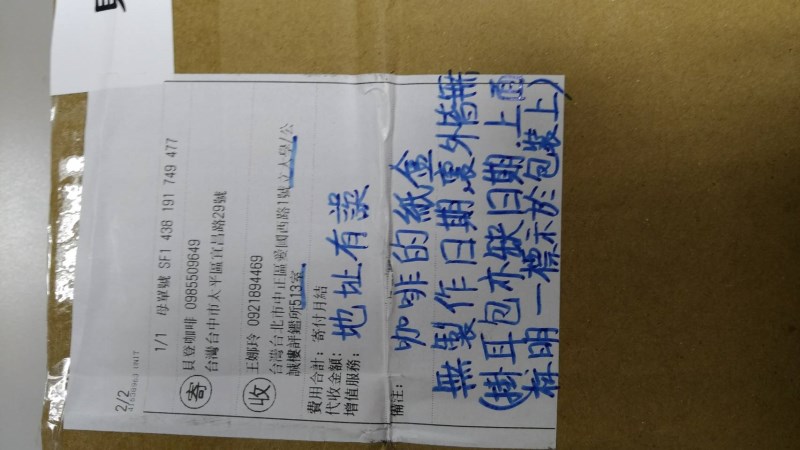 2/2
1/1 母單號 SF1 438 191 749 477
寄 貝登咖啡 0985509649
台灣台中市太平區宜昌路29號
收 王娜玲 0921894469
台灣台北市中正區愛國西路1號立人學/公
誠樓評鑑所513室
費用合計: 寄付月結
代收金額:
增值服務:
地址有誤
備注:
咖啡的紙盒
無製作日期裏外皆無
(掛耳包亦缺日期上
標示於包裝上)